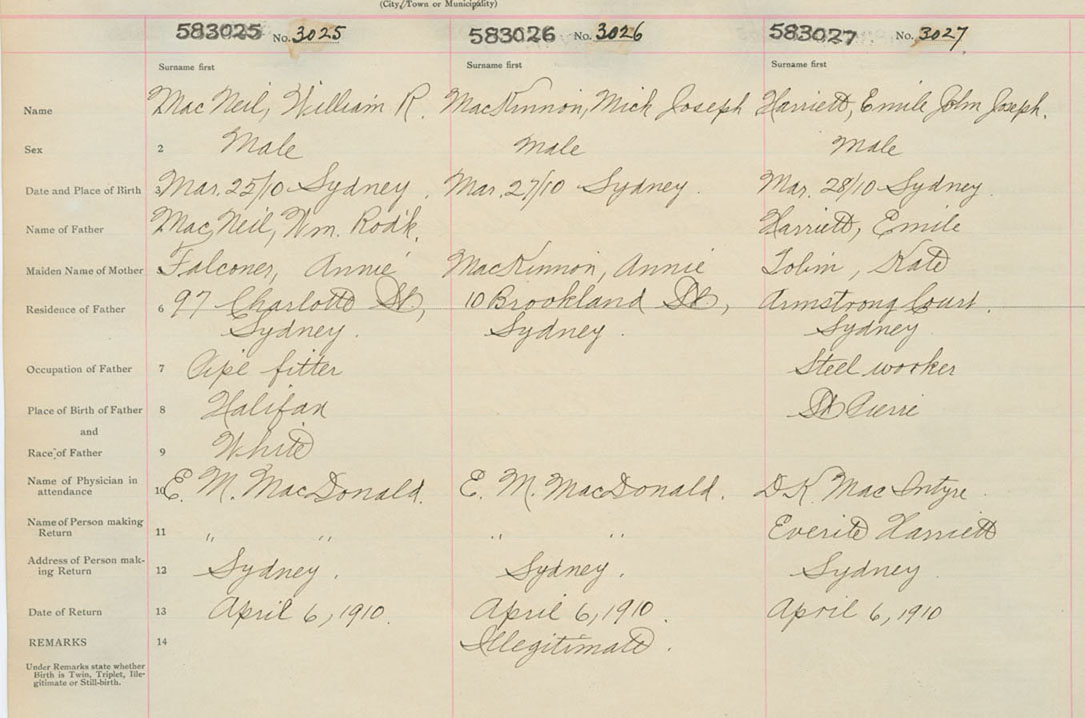 (City, Town or Municipality)
583025 No. 3025 583026 No. 3026 583027 No. 3027
Surname first Surname first Surname first
Name MacNeil, William R. MacKinnon, Mick Joseph Harriett, Emile John Joseph.
Sex 2 Male Male Male
Date and Place of Birth 3 Mar. 25/10 Sydney. Mar. 27/10 Sydney. Mar. 28/10 Sydney.
Name of Father MacNeil, Wm. Rod'k. Harriett, Emile
Maiden Name of Mother 5 Falconer, Annie MacKinnon, Annie Tobin, Kate
Residence of Father 6 97 Charlotte St, 10 Brookland St, Armstrong Court.
Sydney. Sydney. Sydney.
Occupation of Father 7 Pipe fitter Steel worker
Place of Birth of Father 8 Halifax St Pierre
and
Race of Father 9 White
Name of Physician in
attendance 10 E. M. MacDonald. E. M. MacDonald. D K MacIntyre
Name of Person making
Return 11 " " " " Everite Harriett
Address of Person mak-
ing Return 12 Sydney. Sydney. Sydney
Date of Return 13 April 6, 1910. April 6, 1910. April 6, 1910
REMARKS 14 Illegitimate.
Under Remarks state whether
Birth is Twin, Triplet, Ille-
gitimate or Still-birth.